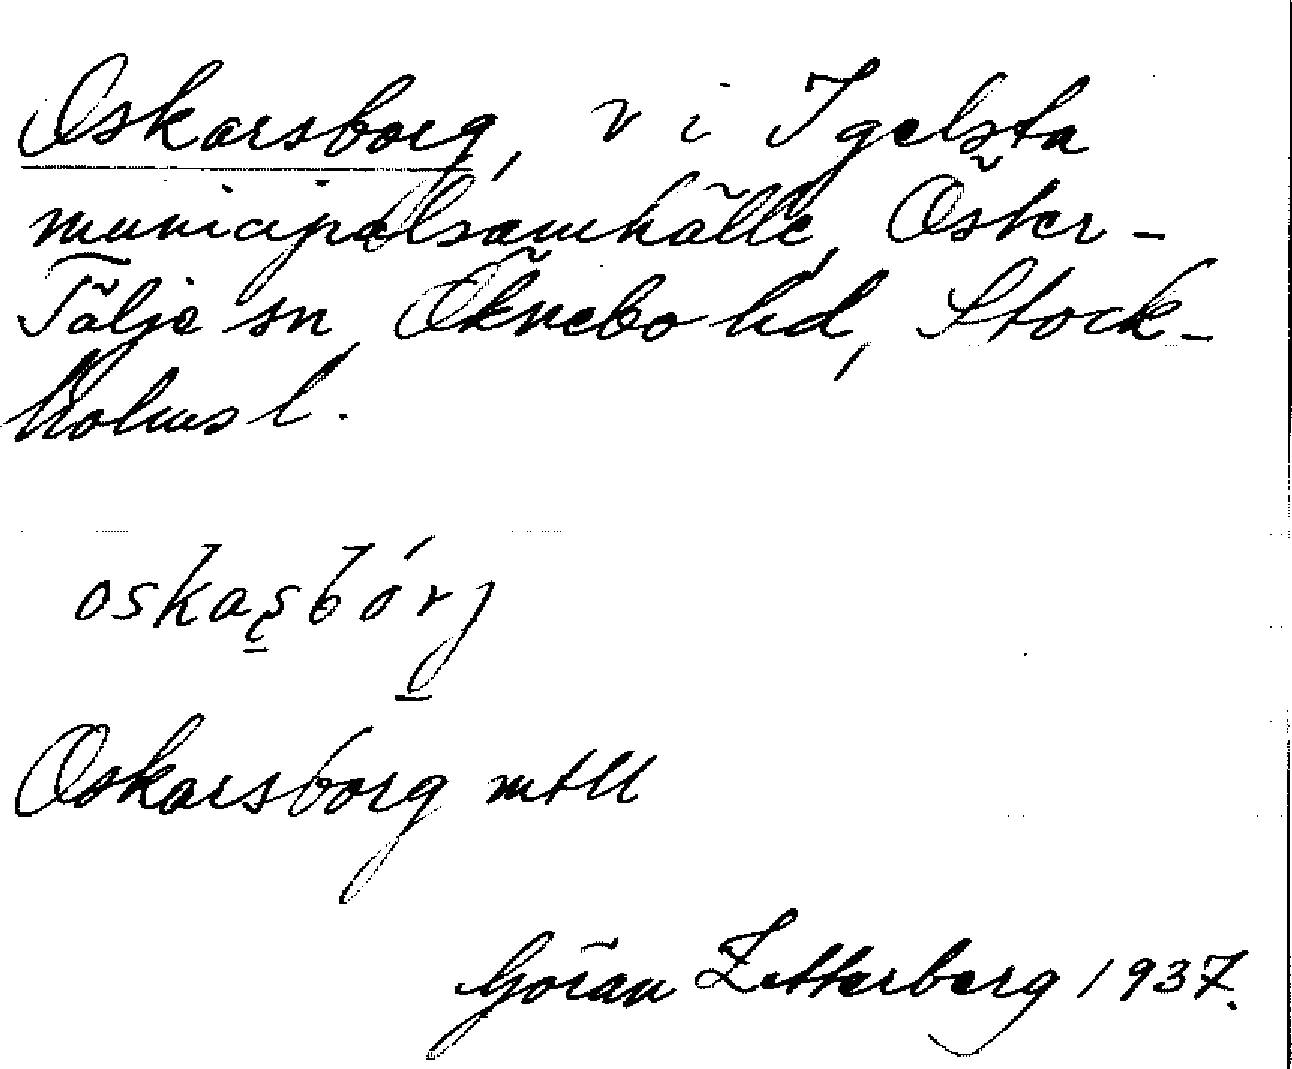 Oskarsborg, v i Igelsta
municipalsamhälle, Öster-
Tälje sn, Öknebo hd, Stock-
holms l.
oskaʂbórj
Oskarsborg mtll
Göran Zetterberg 1937.